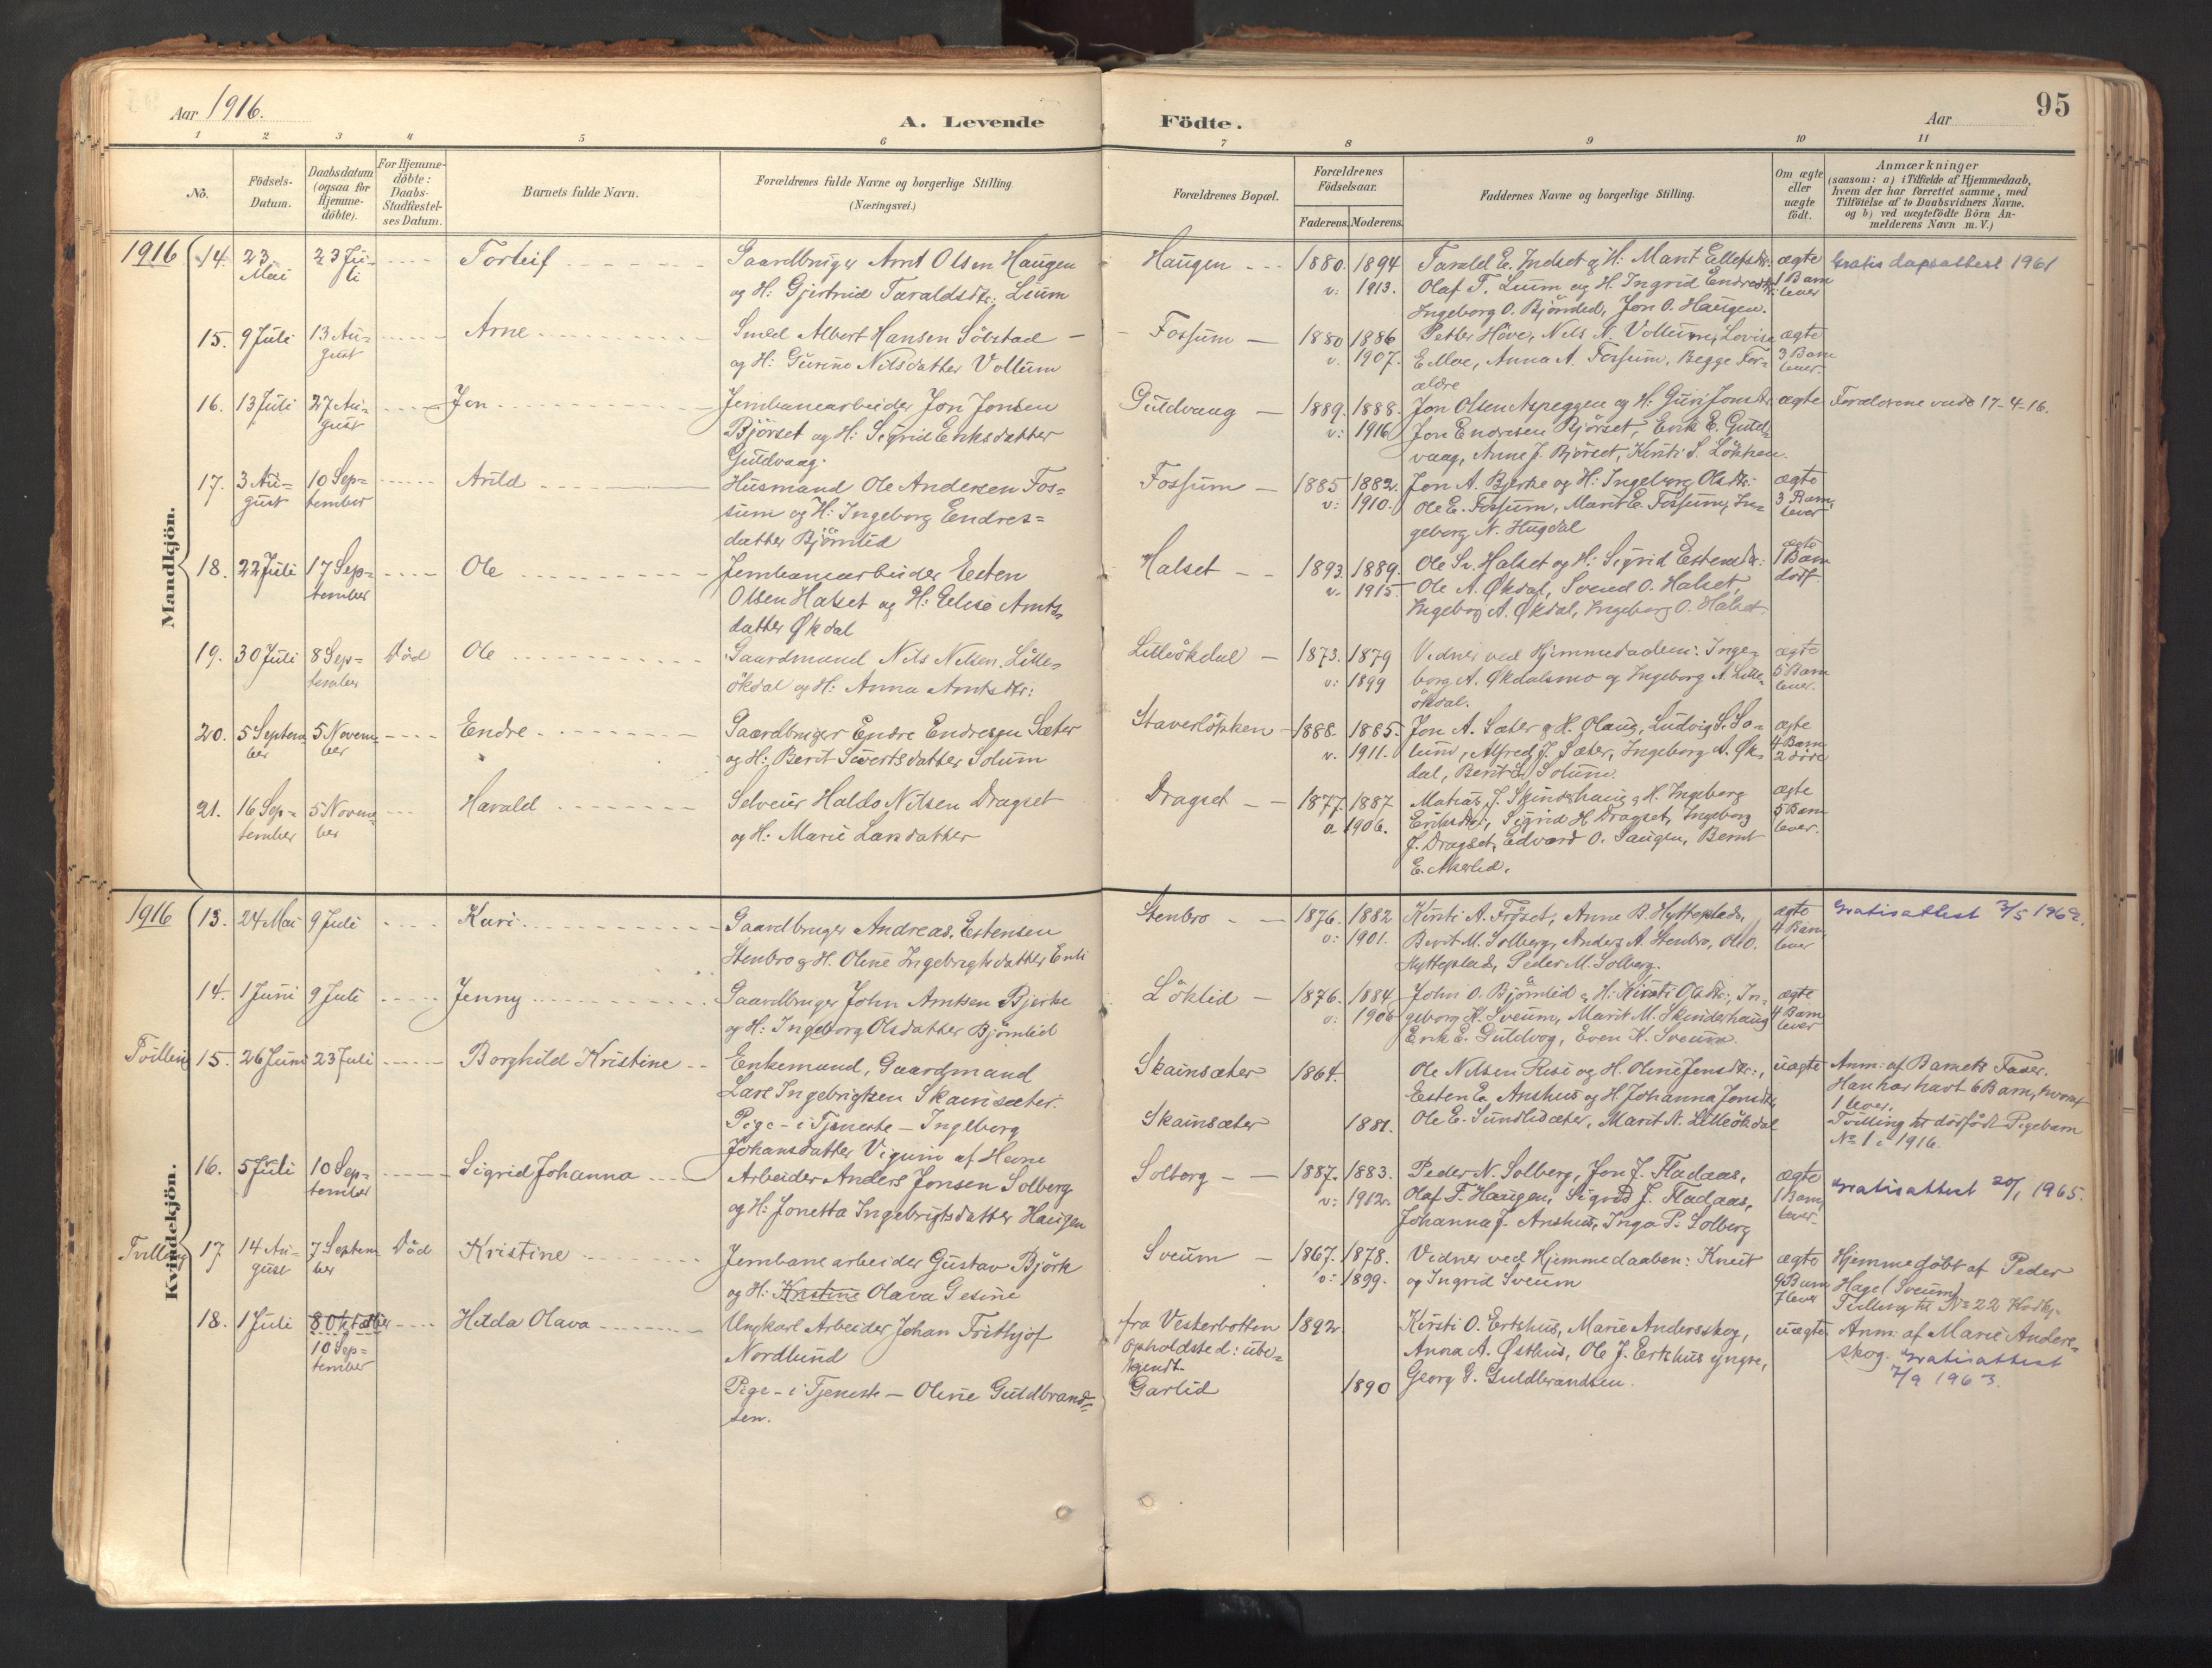 Aar 1916.
A. Levende
Födte.
Aar
95
1 2 3 4 5 6 7 8 9 10 11
Nö.
Födsels-
Datum.
Daabsdatum
(ogsaa for
Hjemme-
döbte).
For Hjemme-
döbte:
Daabs-
Stadfæstel-
ses Datum.
Barnets fulde Navn.
Forældrenes fulde Navne og borgerlige Stilling
(Næringsvei.)
Forældrenes Bopæl.
Forældrenes
Födselsaar.
Faderens. Moderens.
Faddernes Navne og borgerlige Stilling.
Om ægte
eller
uægte
födt.
Anmærkninger
(saasom: a) i Tilfælde af Hjemmedaab,
hvem der har forrettet samme, med
Tilföielse af to Daabsvidners Navne,
og b) ved uægtefödte Börn An-
melderens Navn m. V.)
Mandkjön.
1916 14. 23. Mai 23 Juli Torleif
Gaardbruger Arnt Olsen Haugen
og H: Gjertrud Taraldsdtr: Lium
Haugen 1880. 1894 v: 1913.
Tarald E. Indset og H: Marit Ellefsdtr:
Olaf T. Lium og H. Ingrid Endresdtr:
Ingeborg O. Björnlid, Jon O. Haugen.
ægte 1 Barn lever
Gratis dapsattest 1961
15. 9 Juli 13 August Arne
Smed Albert Hansen Sölstad
og H: Gurine Nilsdatter Vollum
Fossum 1880 1886 v. 1907.
Petter Höve, Nils N. Vollum, Lovise
E Moe, Anna A. Fossum, Begge For-
ældre
ægte 3 Barn lever
16. 13 Juli 27 August Jon
Jernbanearbeider Jon Jonsen
Björset og H: Sigrid Eriksdatter
Guldvaag.
Guldvaag 1889. 1888. v: 1916
Jon Olsen Aspeggen og H: Guri Jonsdtr
Jon Endresen Björset, Erik E. Guld-
vaag, Anne J. Björset, Kirsti S. Lökken.
ægte
Forældrene viede 17-4-16.
17. 3 August 10 September Arild
Husmand Ole Andersen Fos-
sum og H: Ingeborg Endres-
datter Björnlid
Fossum 1885 1882. v: 1910.
Jon A. Bjerke og H: Ingeborg Olsdtr:
Ole E. Fossum, Marit E. Fossum, In-
geborg N. Hugdal
ægte 3 Barn lever
18. 22 Juli 17 September Ole
Jernbanearbeider Esten
Olsen Halset og H: Elise Arnts-
datter Økdal
Halset 1893. 1889. v. 1915
Ole Sr. Halset og H: Sigrid Estensdtr:
Ole A. Økdal, Svend O. Halset,
Ingeborg A. Økdal, Ingeborg O. Halset
ægte 1 Barn dödf.
19. 30 Juli 8 September Död Ole
Gaardmand Nils Nilsen Lille-
ökdal og H: Anna Arntsdtr:
Lilleökdal 1873. 1879 v: 1899
Vidner ved Hjemmedaaben: Inge-
borg A. Økdalsmo og Ingeborg A. Lille-
ökdal.
ægte 5 Barn lever.
20. 5 September 5 November Endre
Gaardbruger Endre Endresen Sæter
og H: Berit Sivertsdatter Solum
Staverlökken 1888. 1885. v. 1911.
Jon A. Sæter og H. Olaug, Ludvig S. So-
lum, Alfred J. Sæter, Ingeborg A. Øk-
dal, Berit L Solum.
ægte 4 Barn 2 döde
21. 16 September 5 November Harald
Selveier Haldo Nilsen Dragset
og H: Marie Larsdatter
Dragset 1877. 1887 v 1906.
Matias J. Skinderhaug og H. Ingeborg
Eriksdtr, Sigrid H Dragset, Ingeborg
J. Dragset, Edvard O. Haugen, Bernt
E.
ægte 5 Barn lever.
Kvindekjön.
1916 13. 24 Mai 9 Juli Kari
Gaardbruger Andreas Estensen
Stenbro og H. Oline Ingebrigtsdatter Enli
Stenbro 1876. 1882 v: 1901.
Kirsti A. Fröset, Anne B. Hytteplads,
Berit M. Solberg, Anders A. Stenbro, Ole O.
Hytteplads, Peder M. Solberg.
ægte 4 Barn lever
Gratisattest 3/5 1962.
14. 1 Juni 9 Juli Jenny
Gaardbruger John Arntsen Bjerke
og H: Ingeborg Olsdatter Björnlid
Löklid 1876. 1884 v: 1906
John O. Björnlid og H: Kirsti Olsdtr:, In-
geborg K. Sveum, Marit M. Skinderhaug
Erik E. Guldvog, Even K. Sveum.
ægte 4 Barn lever
Tvilling 15. 26 Juni 23 Juli Borghild Kristine
Enkemand, Gaardmand
Lars Ingebrigtsen Skainsæter.
Pige - i Tjeneste - Ingeborg
Johansdatter Vigum af Hevne
Skainsæter 1864.
Skainsæter 1881.
Ole Nilsen Risi og H. Oline Jensdtr:,
Esten E. Anshus og H. Johanna Jonsdtr,
Ole E. Sundlisæter, Marit N. Lilleökdal
uægte
Anm: af Barnets Fader.
Han har havt 6 Barn, hvoraf
1 lever.
Tvilling til dödfödt Pigebarn
No 1 i 1916.
16. 5 Juli 10 September Sigrid Johanna
Arbeider Anders Jonsen Solberg
og H: Jonetta Ingebrigtsdatter Haugen
Solborg 1887. 1883. v: 1912.
Peder N. Solberg, Jon J. Fladaas,
Olaf F. Haugen, Sigrid J. Fladaas,
Johanna J. Anshus, Inga P. Solberg
ægte 1 Barn lever
Gratisattest 20/1 1965.
Tvilling 17 14 August 7 September Död Kristine
Jernbanearbeider Gustav Björk
og H: Kristine Olava Gesine
Sveum 1867. 1878. v: 1899.
Vidner ved Hjemmedaaben: Knut
og Ingrid Sveum
ægte 9 Barn 7 lever
Hjemmedöbt af Peder
Hage (Sveum)
Tvilling til No 22
18. 1 Juli 8 Oktober 10 September Hilda Olava
Ungkarl Arbeider Johan Frithjof
Nordlund
Pige - i Tjeneste - Oline Guldbrand-
sen.
fra Vesterbotten
Opholdsted: ube-
kjendt
Garlid
1892 1890
Kirsti O. Ertshus, Marie Andersskog,
Anna A. Østhus, Ole J. Ertshus yngre,
Georg G. Guldbrandsen.
uægte
Anm: af Marie Anders-
skog. Gratisattest
7/9 1963.